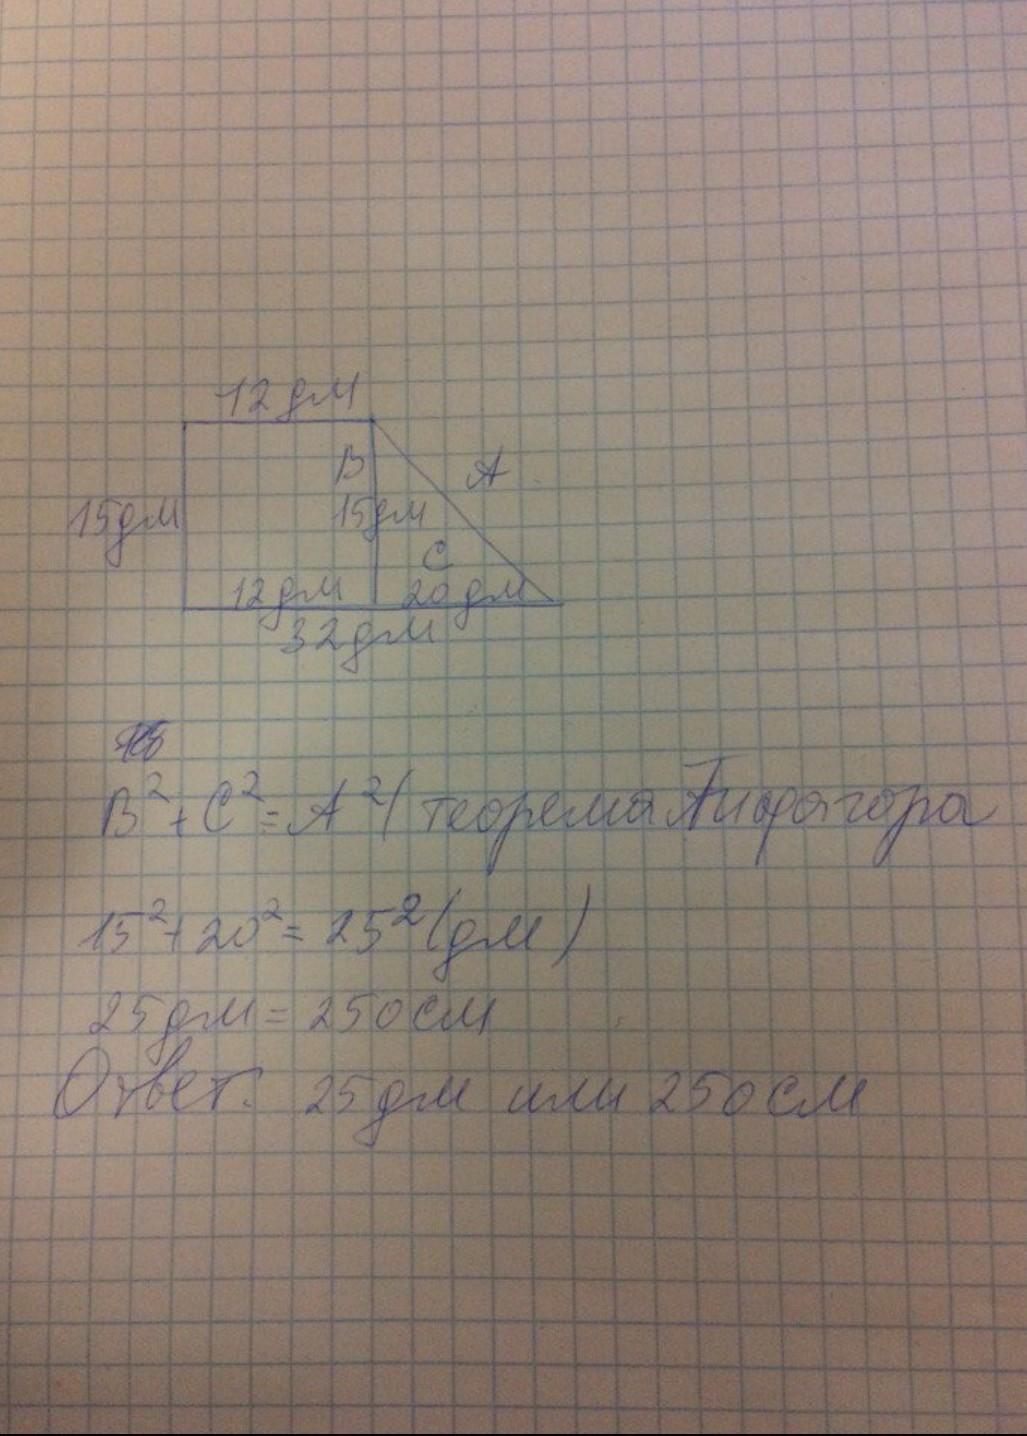 12 дм
В
А
15 дм
15 дм
С
12 дм
20 дм
32 дм
В² + С² = А² ( теорема Пифагора
15² + 20² = 25² (дм)
25 дм = 250 см
Ответ: 25 дм или 250 см